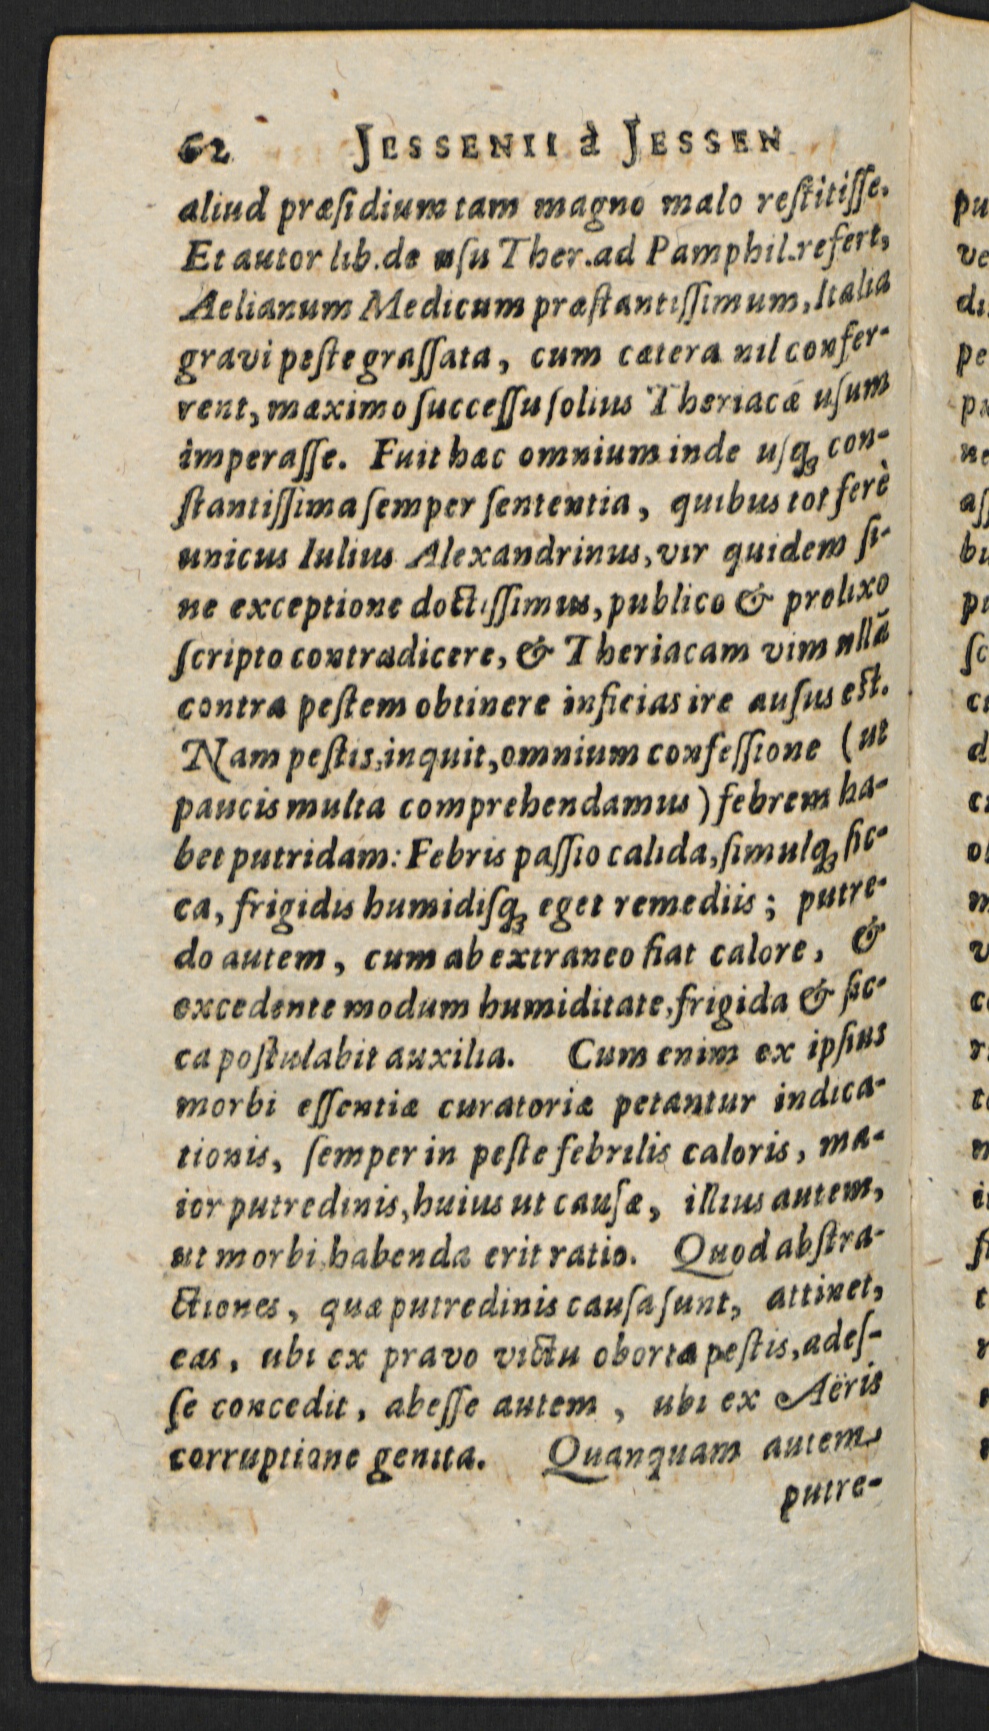 62 JESSENII à JESSEN
aliud præsidium tam magno malo restitisse.
Et autor lib. de usu Ther. ad Pamphil. refert,
Aelianum Medicum præstantissimum, Italia
gravi peste grassata, cum cætera nil confer-
rent, maximo successu solius Theriacæ usum
imperasse. Fuit hæc omnium inde usq́; con-
stantissima semper sententia, quibus tot ferè
unicus Iulius Alexandrinus, vir quidem si-
ne exceptione doctissimus, publico & prolixo
scripto contradicere, & Theriacam vim ullã
contra pestem obtinere inficias ire ausus est.
Nam pestis, inquit, omnium confessione (ut
paucis multa comprehendamus) febrem ha-
bet putridam: Febris passio calida, simulq́; sic-
ca, frigidis humidisq́; eget remediis; putre-
do autem, cum ab extraneo fiat calore, &
excedente modum humiditate, frigida & sic-
ca postulabit auxilia. Cum enim ex ipsius
morbi essentiæ curatoriæ petantur indica-
tionis, semper in peste febrilis caloris, ma-
ior putredinis, huius ut causæ, illius autem,
ut morbi habenda erit ratio. Quod abstra-
ctiones, quæ putredinis causa sunt, attinet,
eas, ubi ex pravo victu oborta pestis, ades-
se concedit, abesse autem, ubi ex Aëris
corruptione genita. Quanquam autem
putre-
pu
ve
di
pe
ne
ass
bu
sc
d
m
v
r